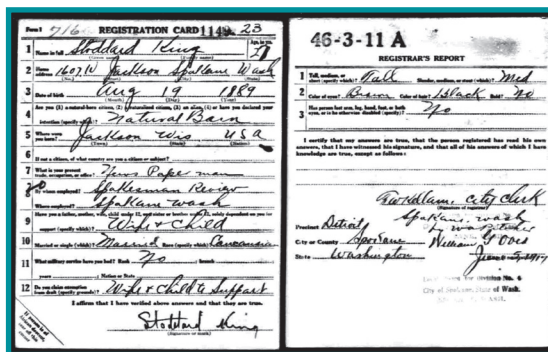 Form 1 716 REGISTRATION CARD 1149 23
1 Name in full Stoddard King Age, in yrs.
2 Home address 1607 N Jackson Spokane Wash
3 Date of birth Aug 19 1889
(Month) (Day) (Year)
4 Are you (1) a natural-born citizen, (2) a naturalized citizen, (3) an alien, (4) or have you declared your
intention (specify which)? Natural Born
5 Where were you born? Jackson Wis USA
(Town) (State) (Nation)
6 If not a citizen, of what country are you a citizen or subject?
7 What is your present trade, occupation, or office? News Paper man
8 By whom employed? Spokesman Review
Where employed? Spokane Wash
9 Have you a father, mother, wife, child under 12, or a sister or brother under 12, solely dependent on you for
support (specify which)? Wife + Child
10 Married or single (which)? Married Race (specify which)? Caucasian
11 What military service have you had? Rank No branch
years Nation or State
12 Do you claim exemption from draft (specify grounds)? Wife + Child to Support
I affirm that I have verified above answers and that they are true.
Stoddard King
(Signature or mark)
46-3-11 A
REGISTRAR'S REPORT
1 Tall, medium, or short (specify which)? Tall Slender, medium, or stout (which)? Med
2 Color of eyes? Brown Color of hair? Black Bald? No
3 Has person lost arm, leg, hand, foot, or both
eyes, or is he otherwise disabled (specify)? No
I certify that my answers are true, that the person registered has read his own
answers, that I have witnessed his signature, and that all of his answers of which I have
knowledge are true, except as follows:
city clerk
(Signature of registrar)
Spokane, Wash
Precinct Detroit
City or County Spokane
State Washington June 5, 1917
City of Spokane, State of Wash.